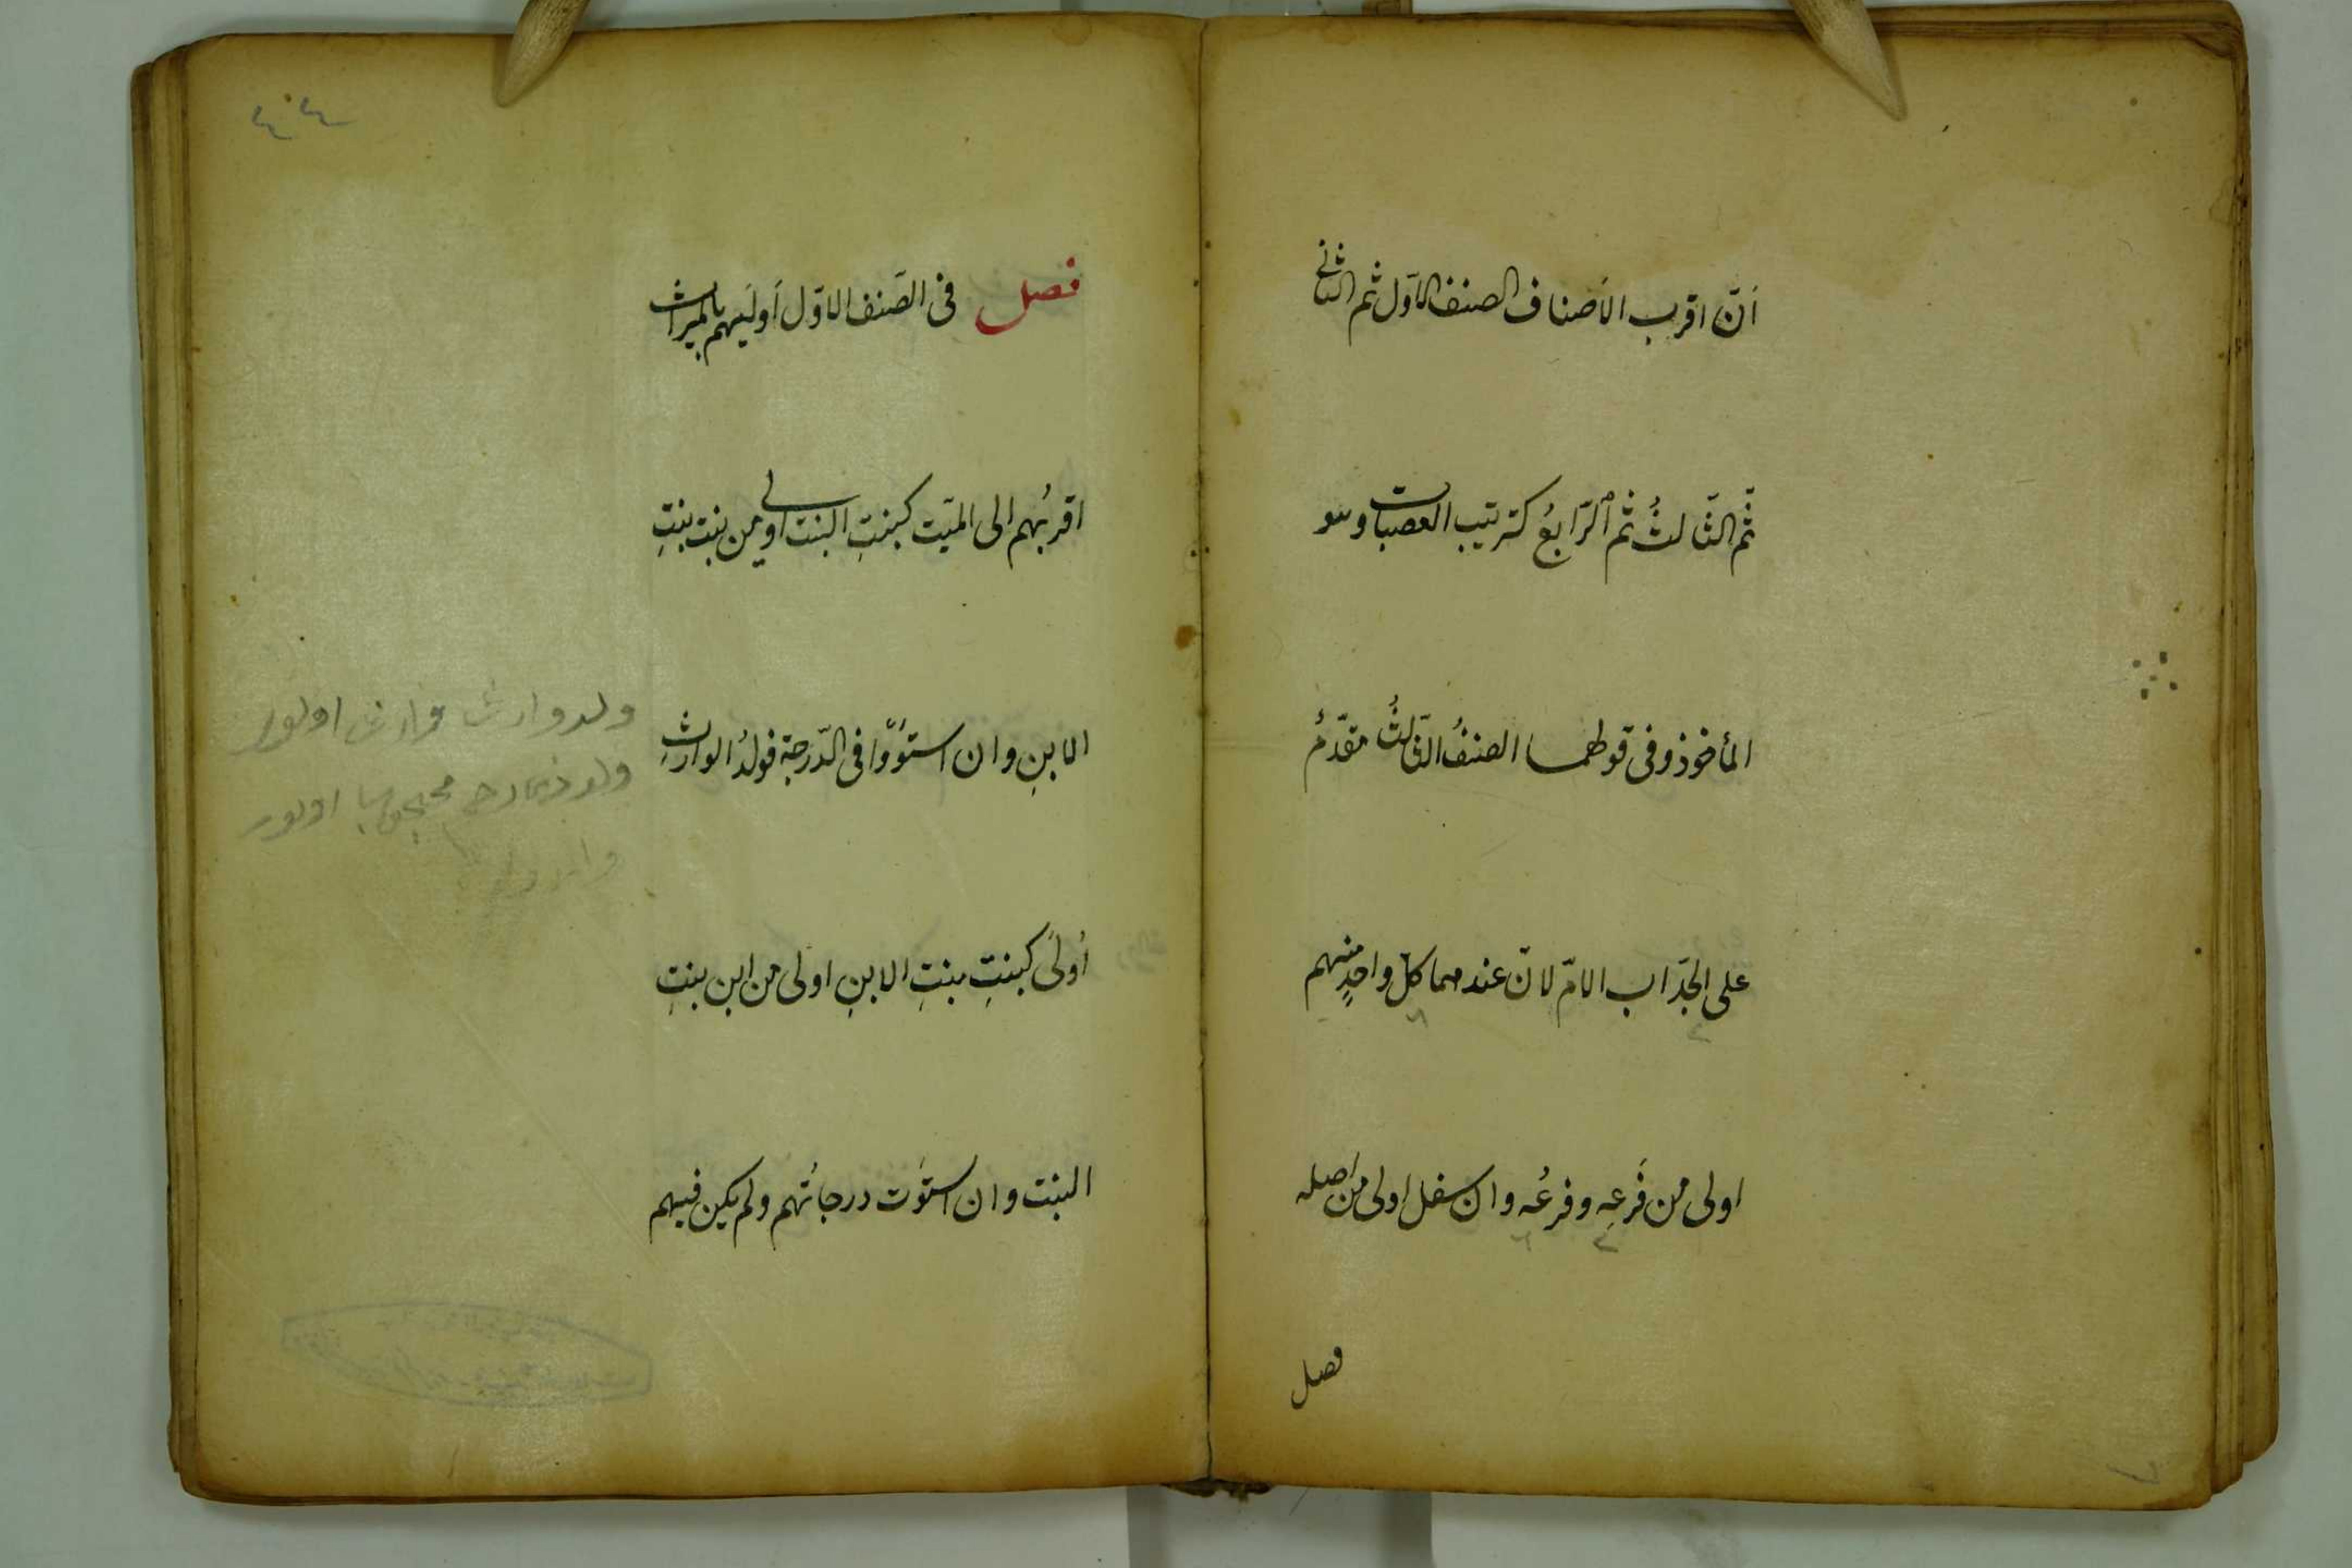 أنّ اقرب الأصناف الصنف الأوّل ثم الثاني
ثّم الثّالثُ ثم الرّابعُ كترتيب العصبات وهو
المأخوذ وفى قولهما الصنفُ الثّالثُ مقدّمٌ
على الجدّ اب الامّ لانّ عندهما كلّ واحدٍ منهم
اولى من فَرعِه وفرعُه وان سفل اولى من اصله
فصل
٤٤
فصل فى الصّنف الاوّل أوليَهم بالميراث
اقربُهم الى الميّت كبنتِ البنت اولى من بنت بنتِ
الابنِ وان استوَوْا فى الدّرجة فولدُ الوارثِ
أولَى كبنتِ بنتِ الابنِ اولى من ابن بنتِ
البنت وان استوَت درجاتُهم ولم يكن فيهم
ولد وارث وارث اولور